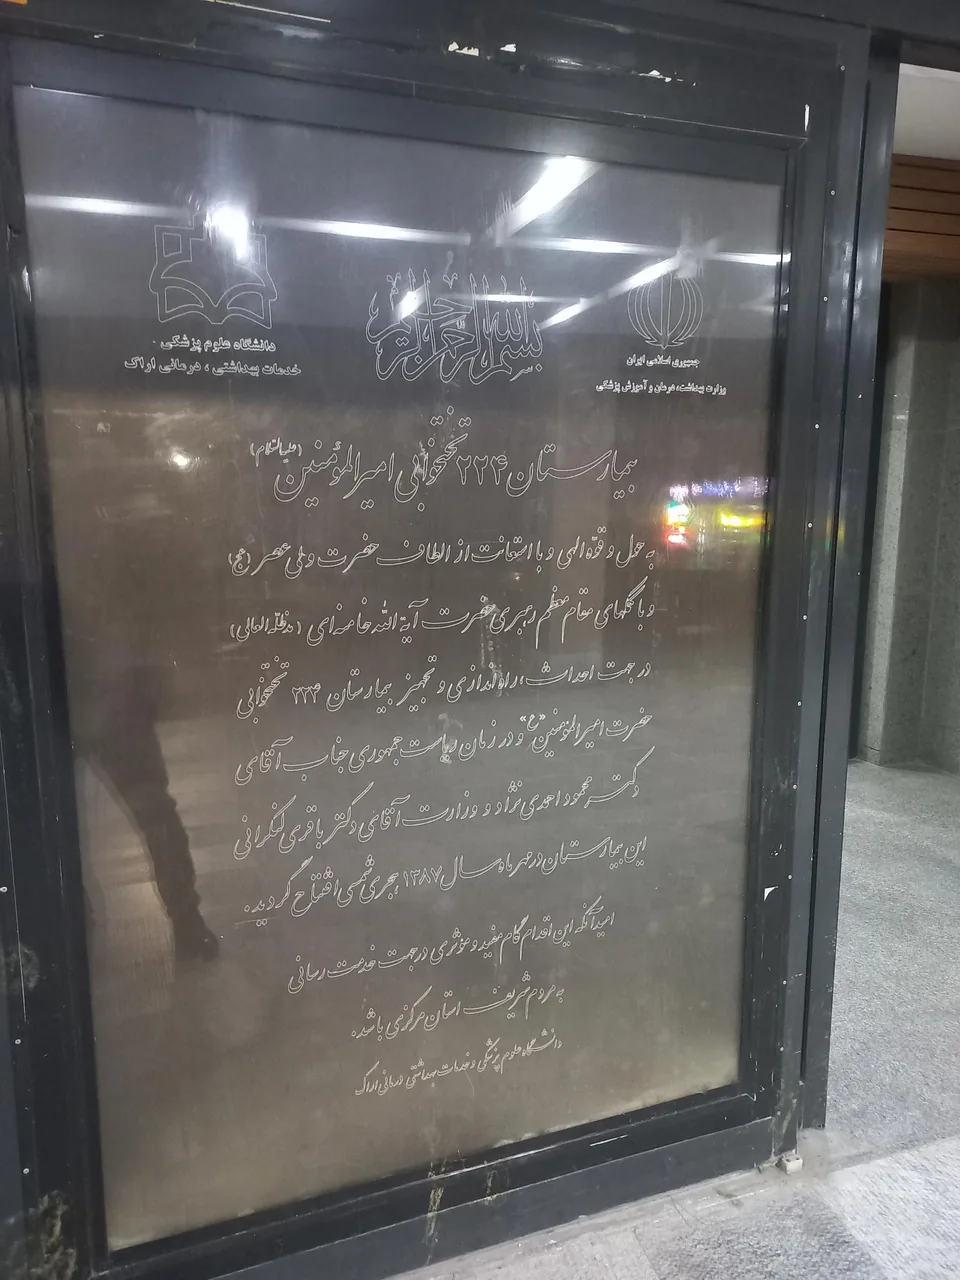 بسم الله الرحمن الرحیم
جمهوری اسلامی ایران
وزارت بهداشت، درمان و آموزش پزشکی
دانشگاه علوم پزشکی
خدمات بهداشتی ، درمانی اراک
بیمارستان ۲۲۴ تختخوابی امیرالمؤمنین (علیه‌السلام)
به حول و قوه الهی و با استعانت از الطاف حضرت ولی عصر (عج)
و با کمکهای مقام معظم رهبری حضرت آیة الله خامنه‌ای (مدظله العالی)
در جهت احداث، راه‌اندازی و تجهیز بیمارستان ۲۲۴ تختخوابی
حضرت امیرالمؤمنین "ع" و در زمان ریاست جمهوری جناب آقای
دکتر محمود احمدی نژاد و وزارت آقای دکتر باقری لنکرانی
این بیمارستان در مهر ماه سال ۱۳۸۷ هجری شمسی افتتاح گردید.
امید آنکه این اقدام گام مفید و موثری در جهت خدمت رسانی
به مردم شریف استان مرکزی باشد.
دانشگاه علوم پزشکی و خدمات بهداشتی درمانی اراک